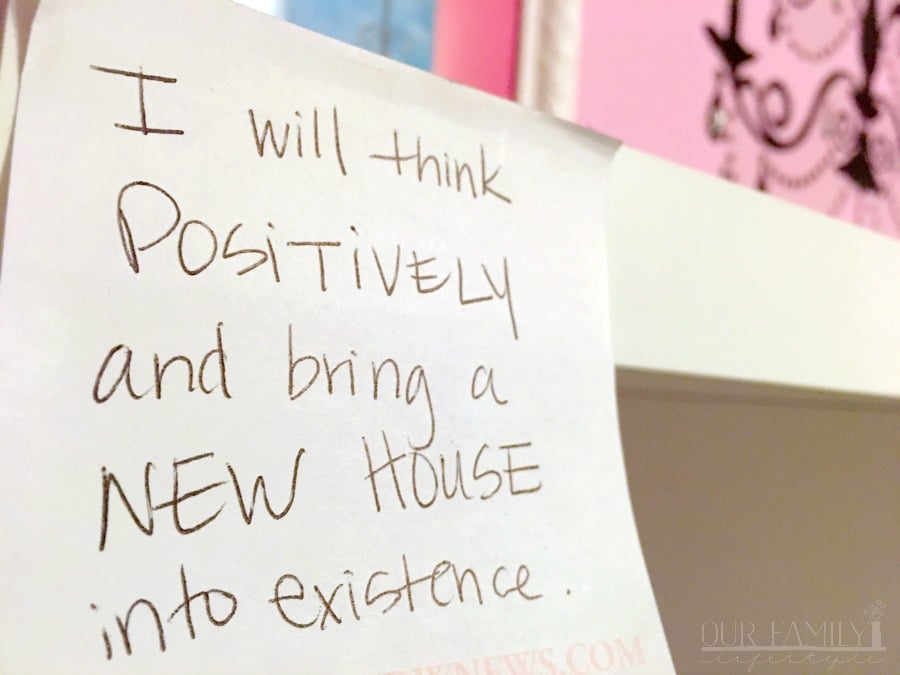 I will think
POSiTiVELY
and bring a
NEW HOUSE
into existence.
NEWS.COM
OUR FAMILY
lifestyle